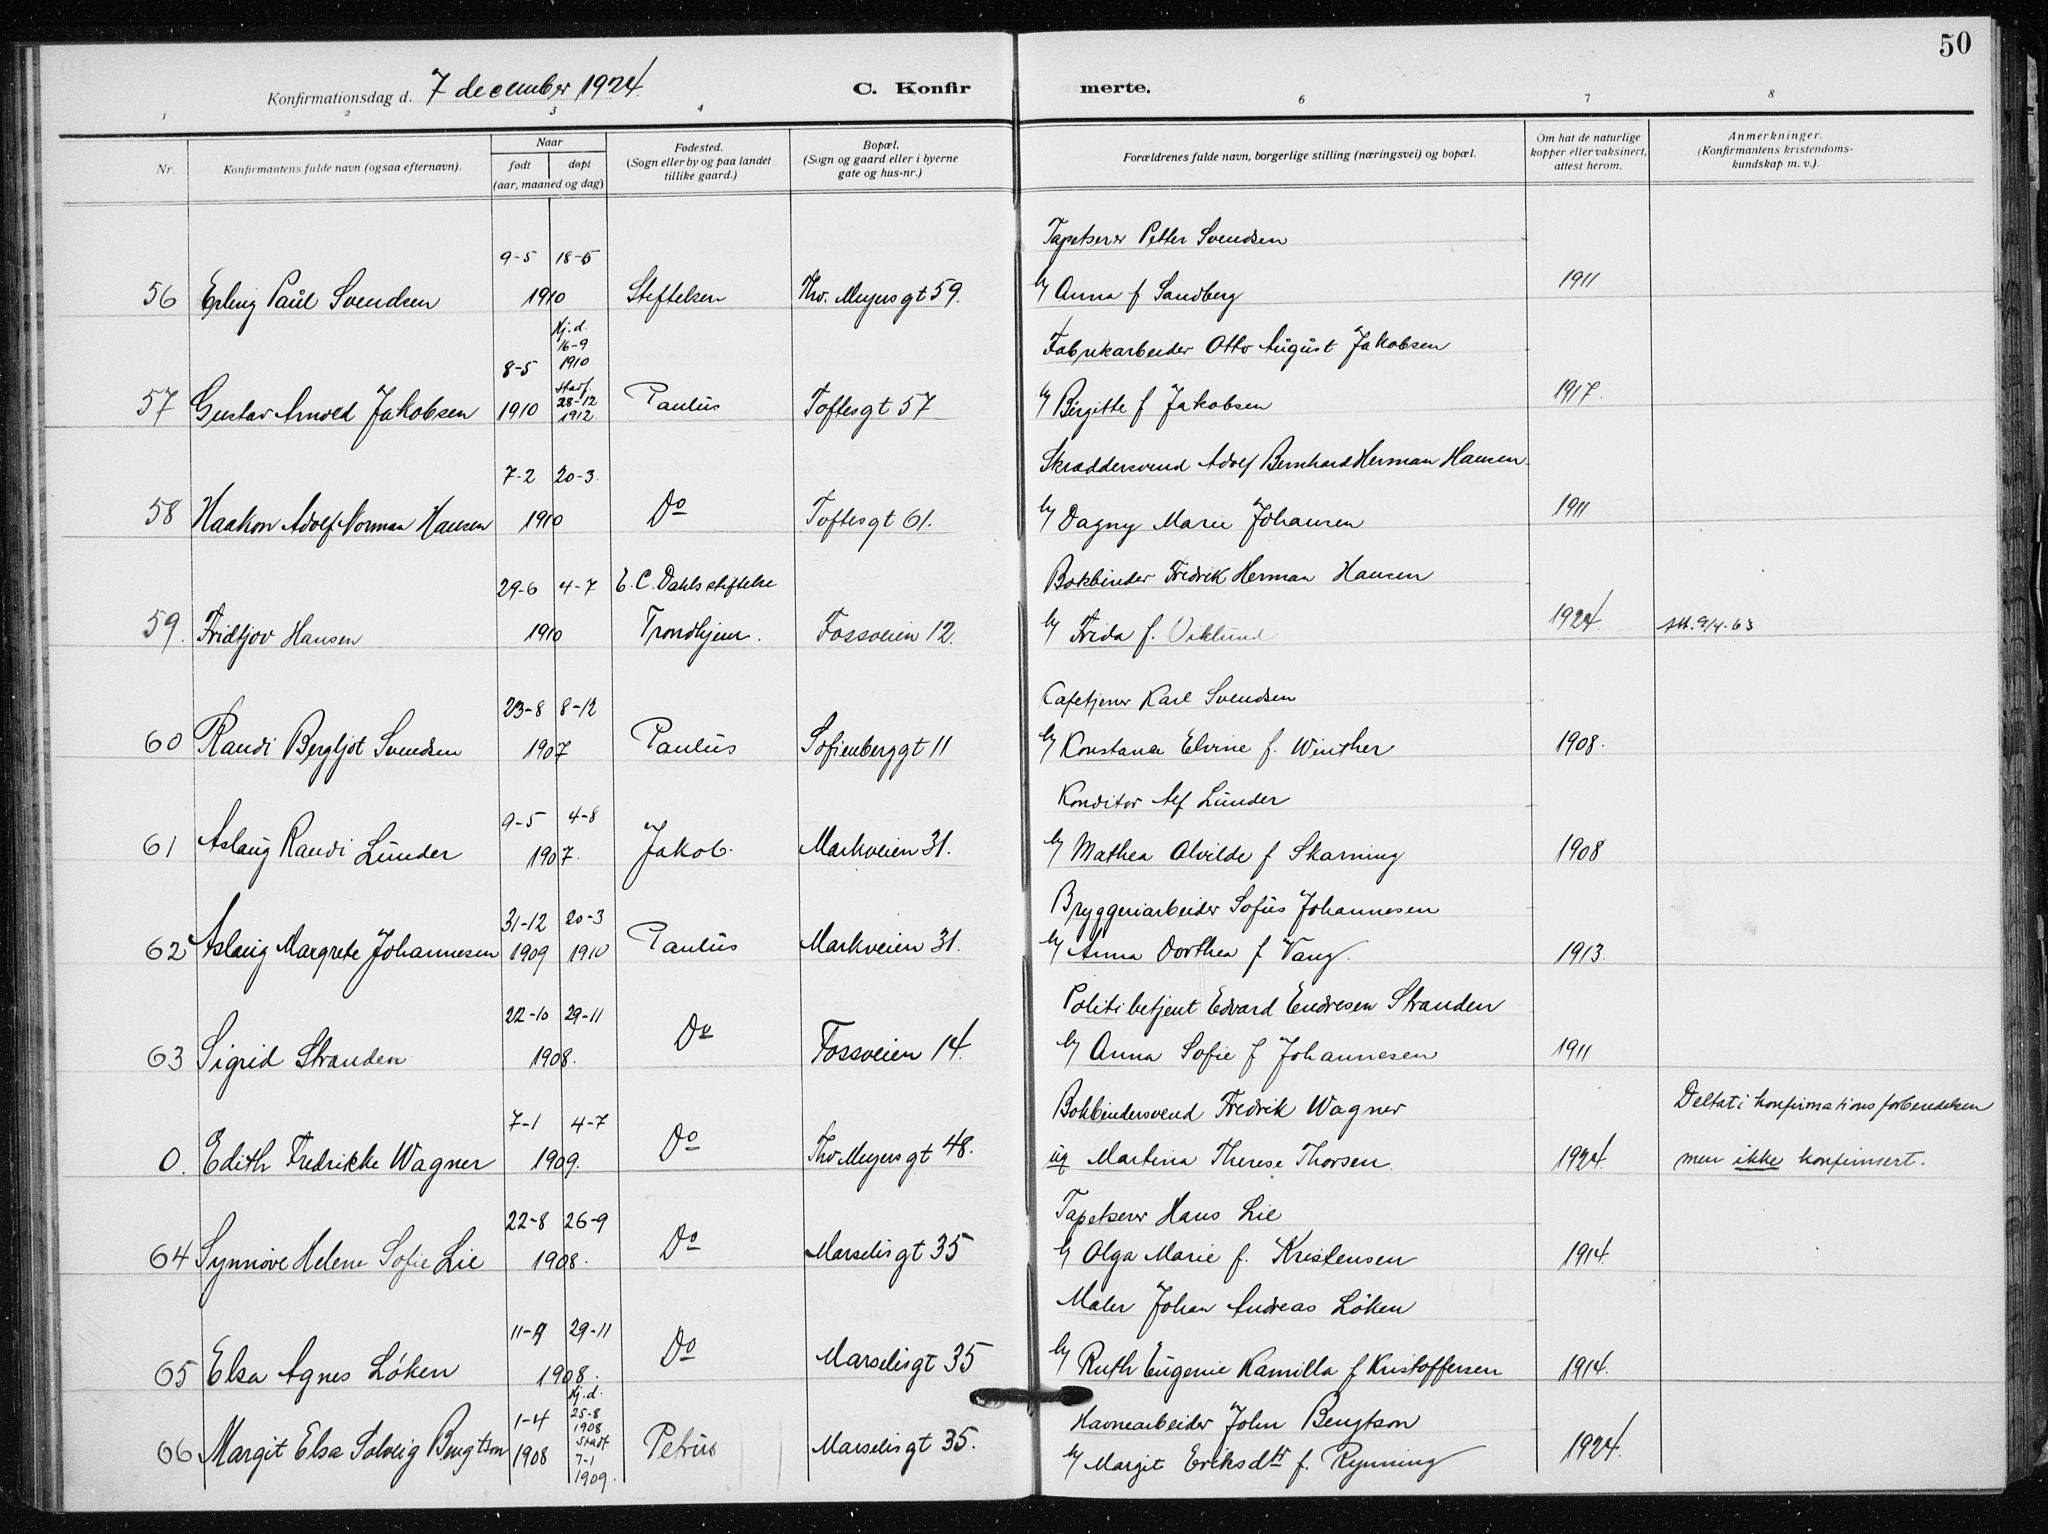 50
Konfirmationsdag d. 7 december 1924. C. Konfirmerte.
1 2 3 4 6 7 8
Nr. Konfirmantens fulde navn (ogsaa efternavn). Naar født døpt (aar, maaned og dag) Fødested. (Sogn eller by og paa landet tillike gaard.) Bopæl. (Sogn og gaard eller i byerne gate og hus-nr.) Forældrenes fulde navn, borgerlige stilling (næringsvei) og bopæl. Om hat de naturlige kopper eller vaksinert, attest herom. Anmerkninger. (Konfirmantens kristendomskundskap m. v.).
9-5 18-5 Tapetserer Petter Svendsen
56 Erling Paul Svendsen 1910 Stiftelsen Thv. Meyers gt 59. Anna f Sandberg 1911
Hj.d. 16-9 1910 Fabrikarbeider Otto August Jakobsen
8-5 Stadf. 28-12 1912
57 Gustav Arnold Jakobsen 1910 Paulus Toftesgt 57 Birgitte f Jakobsen 1917.
7-2 20-3. Skræddersvend Adolf Bernhard Herman Hansen
58 Haakon Adolf Norman Hansen 1910 Do Toftesgt 61. Dagny Marie Johansen 1911
29-6 4-7 E. C. Dahls stiftelse Bokbinder Fredrik Herman Hansen
59. Fridtjov Hansen 1910 Trondhjem. Fossveien 12. Frida f. Viklund 1924. Att. 9/4-63
23-8 8-12 Cafetjener Karl Svendsen
60 Randi Bergljot Svendsen 1907 Paulus Sofienberggt 11 Konstance Elvine f. Winther 1908.
9-5 4-8 Konditor Alf Lunder
61 Aslaug Randi Lunder 1907. Jakob. Markveien 31. Mathea Alvilde f Skarning 1908
31-12 20-3 Bryggeriarbeider Sofus Johannesen
62 Aslaug Margrete Johannesen 1909 1910 Paulus Markveien 31. Anna Dorthea f Vang. 1913.
22-10 29-11 Politibetjent Edvard Endresen Stranden
63 Sigrid Stranden 1908. Do Fossveien 14. Anna Sofie f Johannesen 1911
7-1 4-7 Bokbindersvend Fredrik Wagner Deltat i konfirmationsforberedelsen
0. Edith Fredrikke Wagner 1909. Do Thv Meyers gt 48. ug Martina Therese Thorsen. 1924. men ikke konfirmert.
22-8 26-9 Tapetserer Hans Lie
64 Synnøve Helene Sofie Lie 1908. Do Marselisgt 35 Olga Marie f. Kristensen 1914.
11-9 29-11 Maler Johan Andreas Løken
65 Elsa Agnes Løken 1908. Do Marselisgt 35 Ruth Eugenie Kamilla f Kristoffersen 1914.
1-4 Hj.d. 25-8 1908 Stadf 7-1 1909. Havnearbeider John Bengtson
66 Margit Elsa Solveig Bengtson 1908 Petrus Marselisgt 35. Margit Eriksdtr f. Rynning 1924.